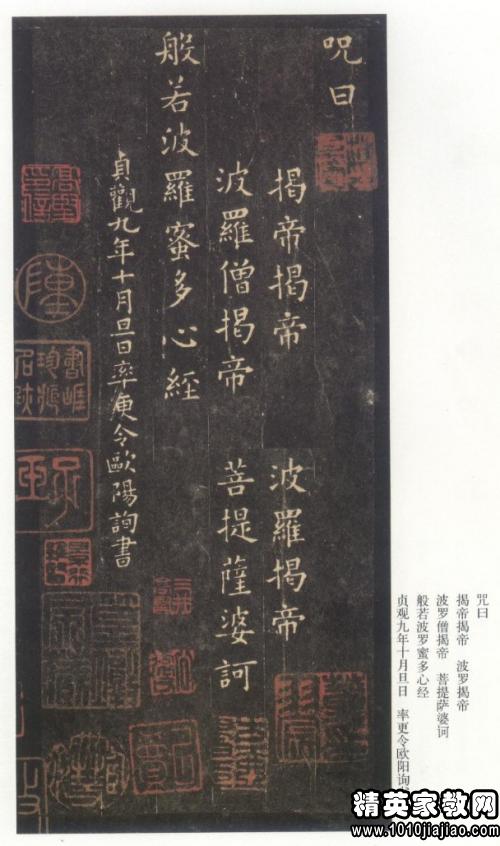 呪曰
揭帝揭帝 波羅揭帝
波羅僧揭帝 菩提薩婆訶
般若波羅蜜多心經
貞觀九年十月旦日率更令歐陽詢書
咒曰
揭帝揭帝 波罗揭帝
波罗僧揭帝 菩提萨婆诃
般若波罗蜜多心经
贞观九年十月旦日 率更令欧阳询
精英家教网
www.1010jiajiao.com